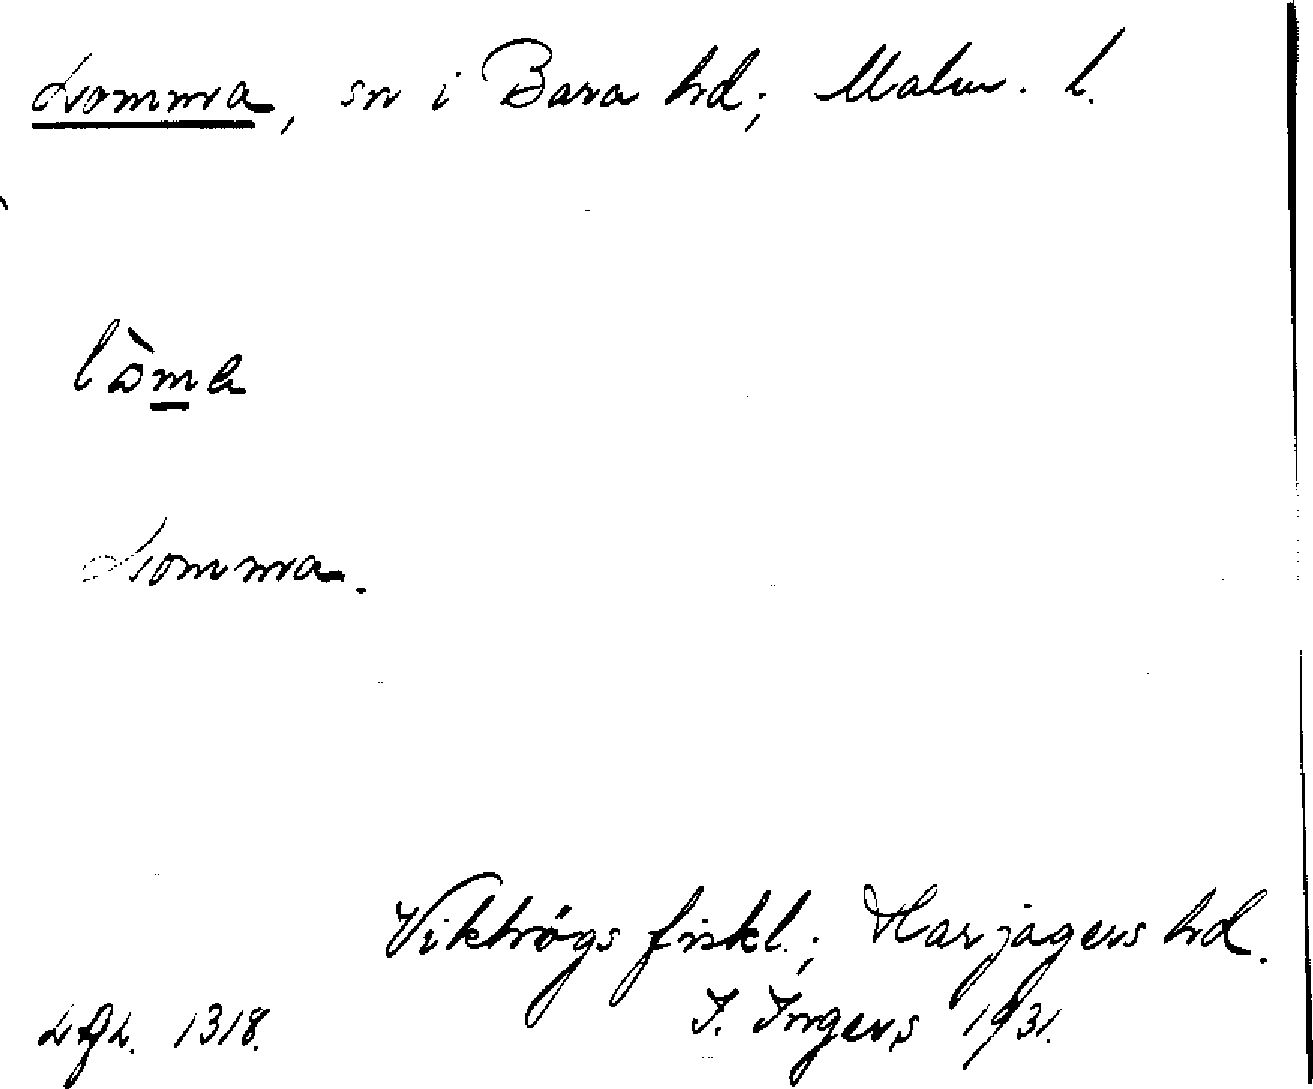 Lomma, sn i Bara hd; Malm. l.
lòma
Lomma.
Vikhögs fiskl.; Harjagers hd.
I. Ingers 1931.
LAL. 1318.